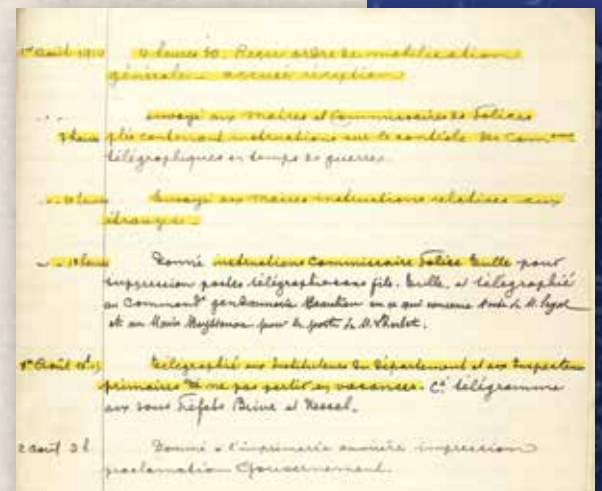 1er Août 1914 4 heures 30. Reçu ordre de mobilisation
générale _ accusé réception
envoyé aux Maires et Commissaires de Polices
7 heures plis contenant instructions sur le contrôle des Comm
télégraphiques en temps de guerre.
10 heures Envoyé aux Maires instructions relatives aux
étrangers _
Donné instructions Commissaire Police Tulle pour
suppression postes télégraphie sans fil. Tulle, et télégraphié
au Commandt gendarmerie Beaulieu en ce qui concerne de M.
et au Maire pour le poste de M.
1er Août Télégraphié aux Instituteurs du Département et aux Inspecteurs
primaires de ne pas partir en vacances. Ce télégramme
aux sous Préfets Brive et Ussel.
2 août 2h Donné à l'imprimerie ouvrière impression
proclamation Gouvernement.